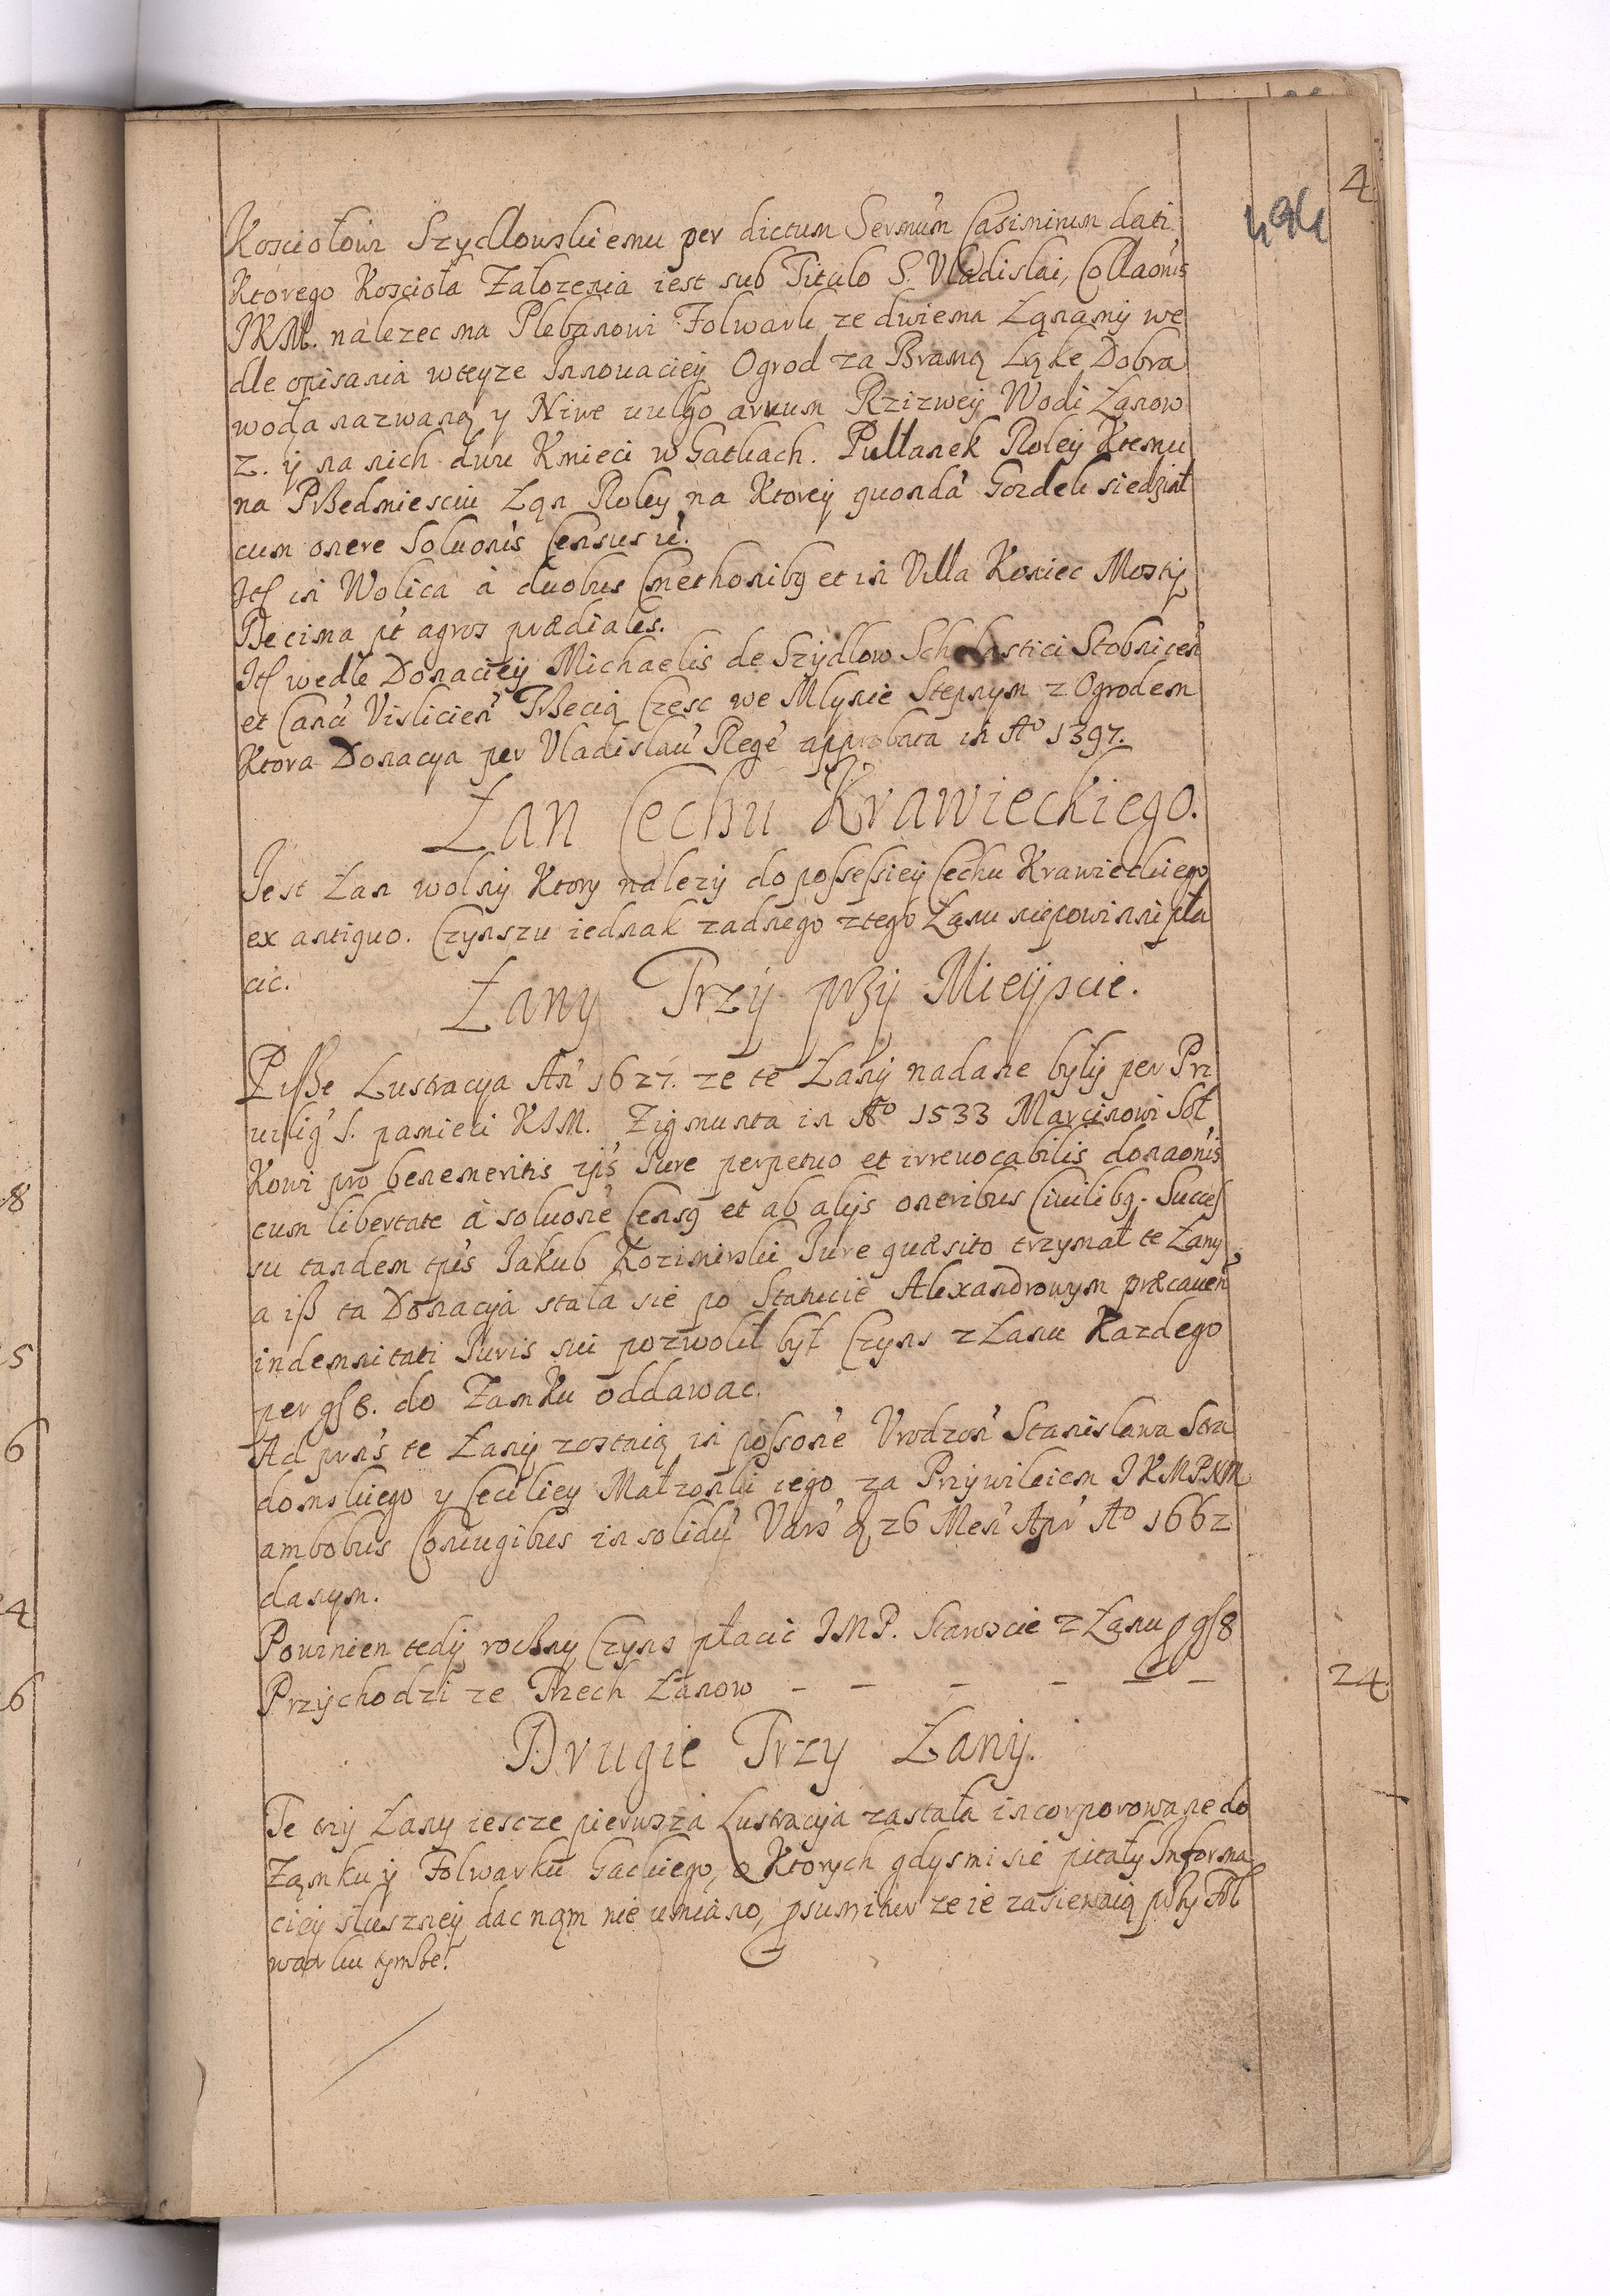 4
494
Kosciołowi Szydłowskiemu per dictum Sermũm Casimirum dati.
Ktorego Koscioła Załozenia iest sub Titulo S. Vladislai, Collaonis
JKM. nalezec ma Plebanowi Folwark ze dwiema Łąnamÿ we
dle opisania wteyze Innouacieÿ Ogrod za Bramą Łąke Dobra
woda nazwaną y Niwe uulgo aruum Rzizweÿ Wodi Łanow
2. ÿ na nich dwu Kmieci w Gatkach. Pułłanek Roleÿ Ktemu
na Pßedmiesciu Łąn Roley na Ktoreÿ quondā Gozdek siedział
cum onere Soluonis Census
Itſ in Wolica à duobus Cmethonibꝫ et in Villa Koniec Mostÿ
Decima pt agros prædiales.
Itſ wedle Donacieÿ Michaelis de Szÿdlow Scholastici Stobniceń
et Canci Visliciеń Tßecią Czesc we Mlynie Stepnym z Ogrodem
Ktora Donacya per Vladislaũ Regē approbata in Aº 1397.
Łan Cechu Krawieckiego.
Jest Łan wolnÿ Ktory nalezÿ do possessieÿ Cechu Krawieckiego
ex antiquo. Czynszu iednak zadnego ztego Łąnu niepowinni pła
cic.
Łany Trzÿ pßÿ Mieÿscie.
Pisße Lustracya Añ 1627. ze te Łanÿ nadane bÿłÿ per Pri
uilig S. pamieci KJM. Zigmunta in Aº 1533 Marcinowi Soł
Kowi pro benemeritis ips Jure perpetuo et irreuocabilis donaonis
cum libertate à soluone Censꝫ et ab alijs oneribus Ciuilibꝫ. Succes
su tandem tpis Jakub Kozimirski Jure quæsito trzymał te Łany
a iß ta Donacya stała sie po Statucie Alexandrowym præcaueñ
indemnitati Juris sui pozwolił był Czyns z Łanu Kazdego
per gſ 8. do Zamku oddawac.
Ad prns te Łanÿ zostaią in possone Vrodzoñ Stanisława Stra
domskiego y Ceciliey Małzonki iego za Przÿwileiem JKMPNM
ambobus Coniugibus in solidũ Vars 26 Meñ Apr Aº 1662
danym.
Powinien tedÿ roczny Czyns płacic JMP. Staroscie z Łanu ꝑ gſ 8
Przÿchodzi ze Trzech Łanow - - - - - - 24
Drugie Trzy Łanÿ.
Te trzÿ Łany iescze pierwsza Lustracya zastała incorporowane do
Ząmku ÿ Folwarku Gackiego, o Ktorych gdysmi sie pitały Informa
cieÿ słuszneÿ dac nąm nie umiano, ꝑsumimus ze ie zasiewaią pßÿ Fol
warku tymße.